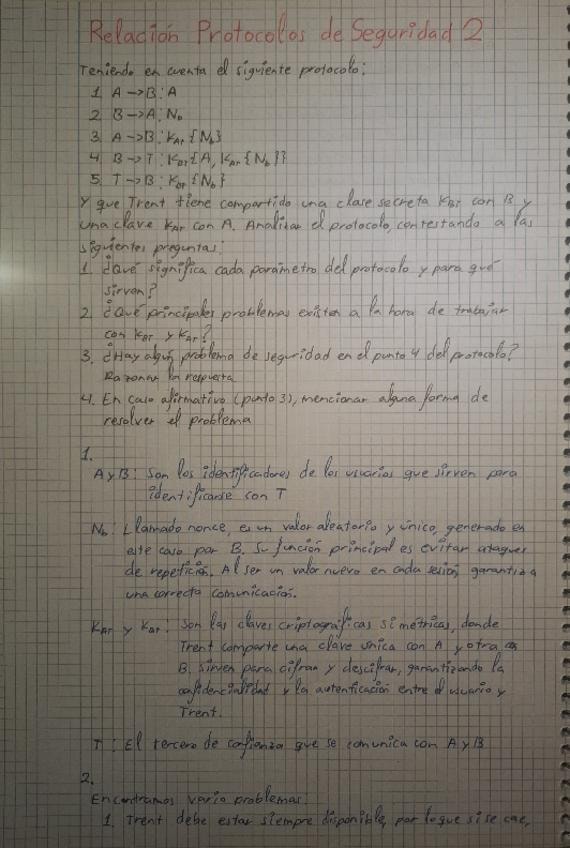 Relación Protocolos de Seguridad 2
Teniendo en cuenta el siguiente protocolo:
1. A → B: A
2. B → A: Nb
3. A → B: KAT {Nb}
4. B → T: KBT {A, KAT {Nb}}
5. T → B: KBT {Nb}
Y que Trent tiene compartido una clave secreta KBT con B y
una clave KAT con A. Analizar el protocolo, contestando a las
siguientes preguntas:
1. ¿Qué significa cada parámetro del protocolo y para qué
sirven?
2. ¿Qué principales problemas existen a la hora de trabajar
con KBT y KAT?
3. ¿Hay algún problema de seguridad en el punto 4 del protocolo?
Razonar la respuesta
4. En caso afirmativo (punto 3), mencionar alguna forma de
resolver el problema
1.
A y B: Son los identificadores de los usuarios que sirven para
identificarse con T
Nb: Llamado nonce, es un valor aleatorio y único, generado en
este caso por B. Su función principal es evitar ataques
de repetición. Al ser un valor nuevo en cada sesión, garantiza
una correcta comunicación.
KAT y KBT: Son las claves criptográficas simétricas, donde
Trent comparte una clave única con A y otra
B. Sirven para cifrar y descifrar, garantizando la
confidencialidad y la autenticación entre el usuario y
Trent.
T: El tercero de confianza que se comunica con A y B
2.
Encontramos varios problemas:
1. Trent debe estar siempre disponible, por lo que si se cae,